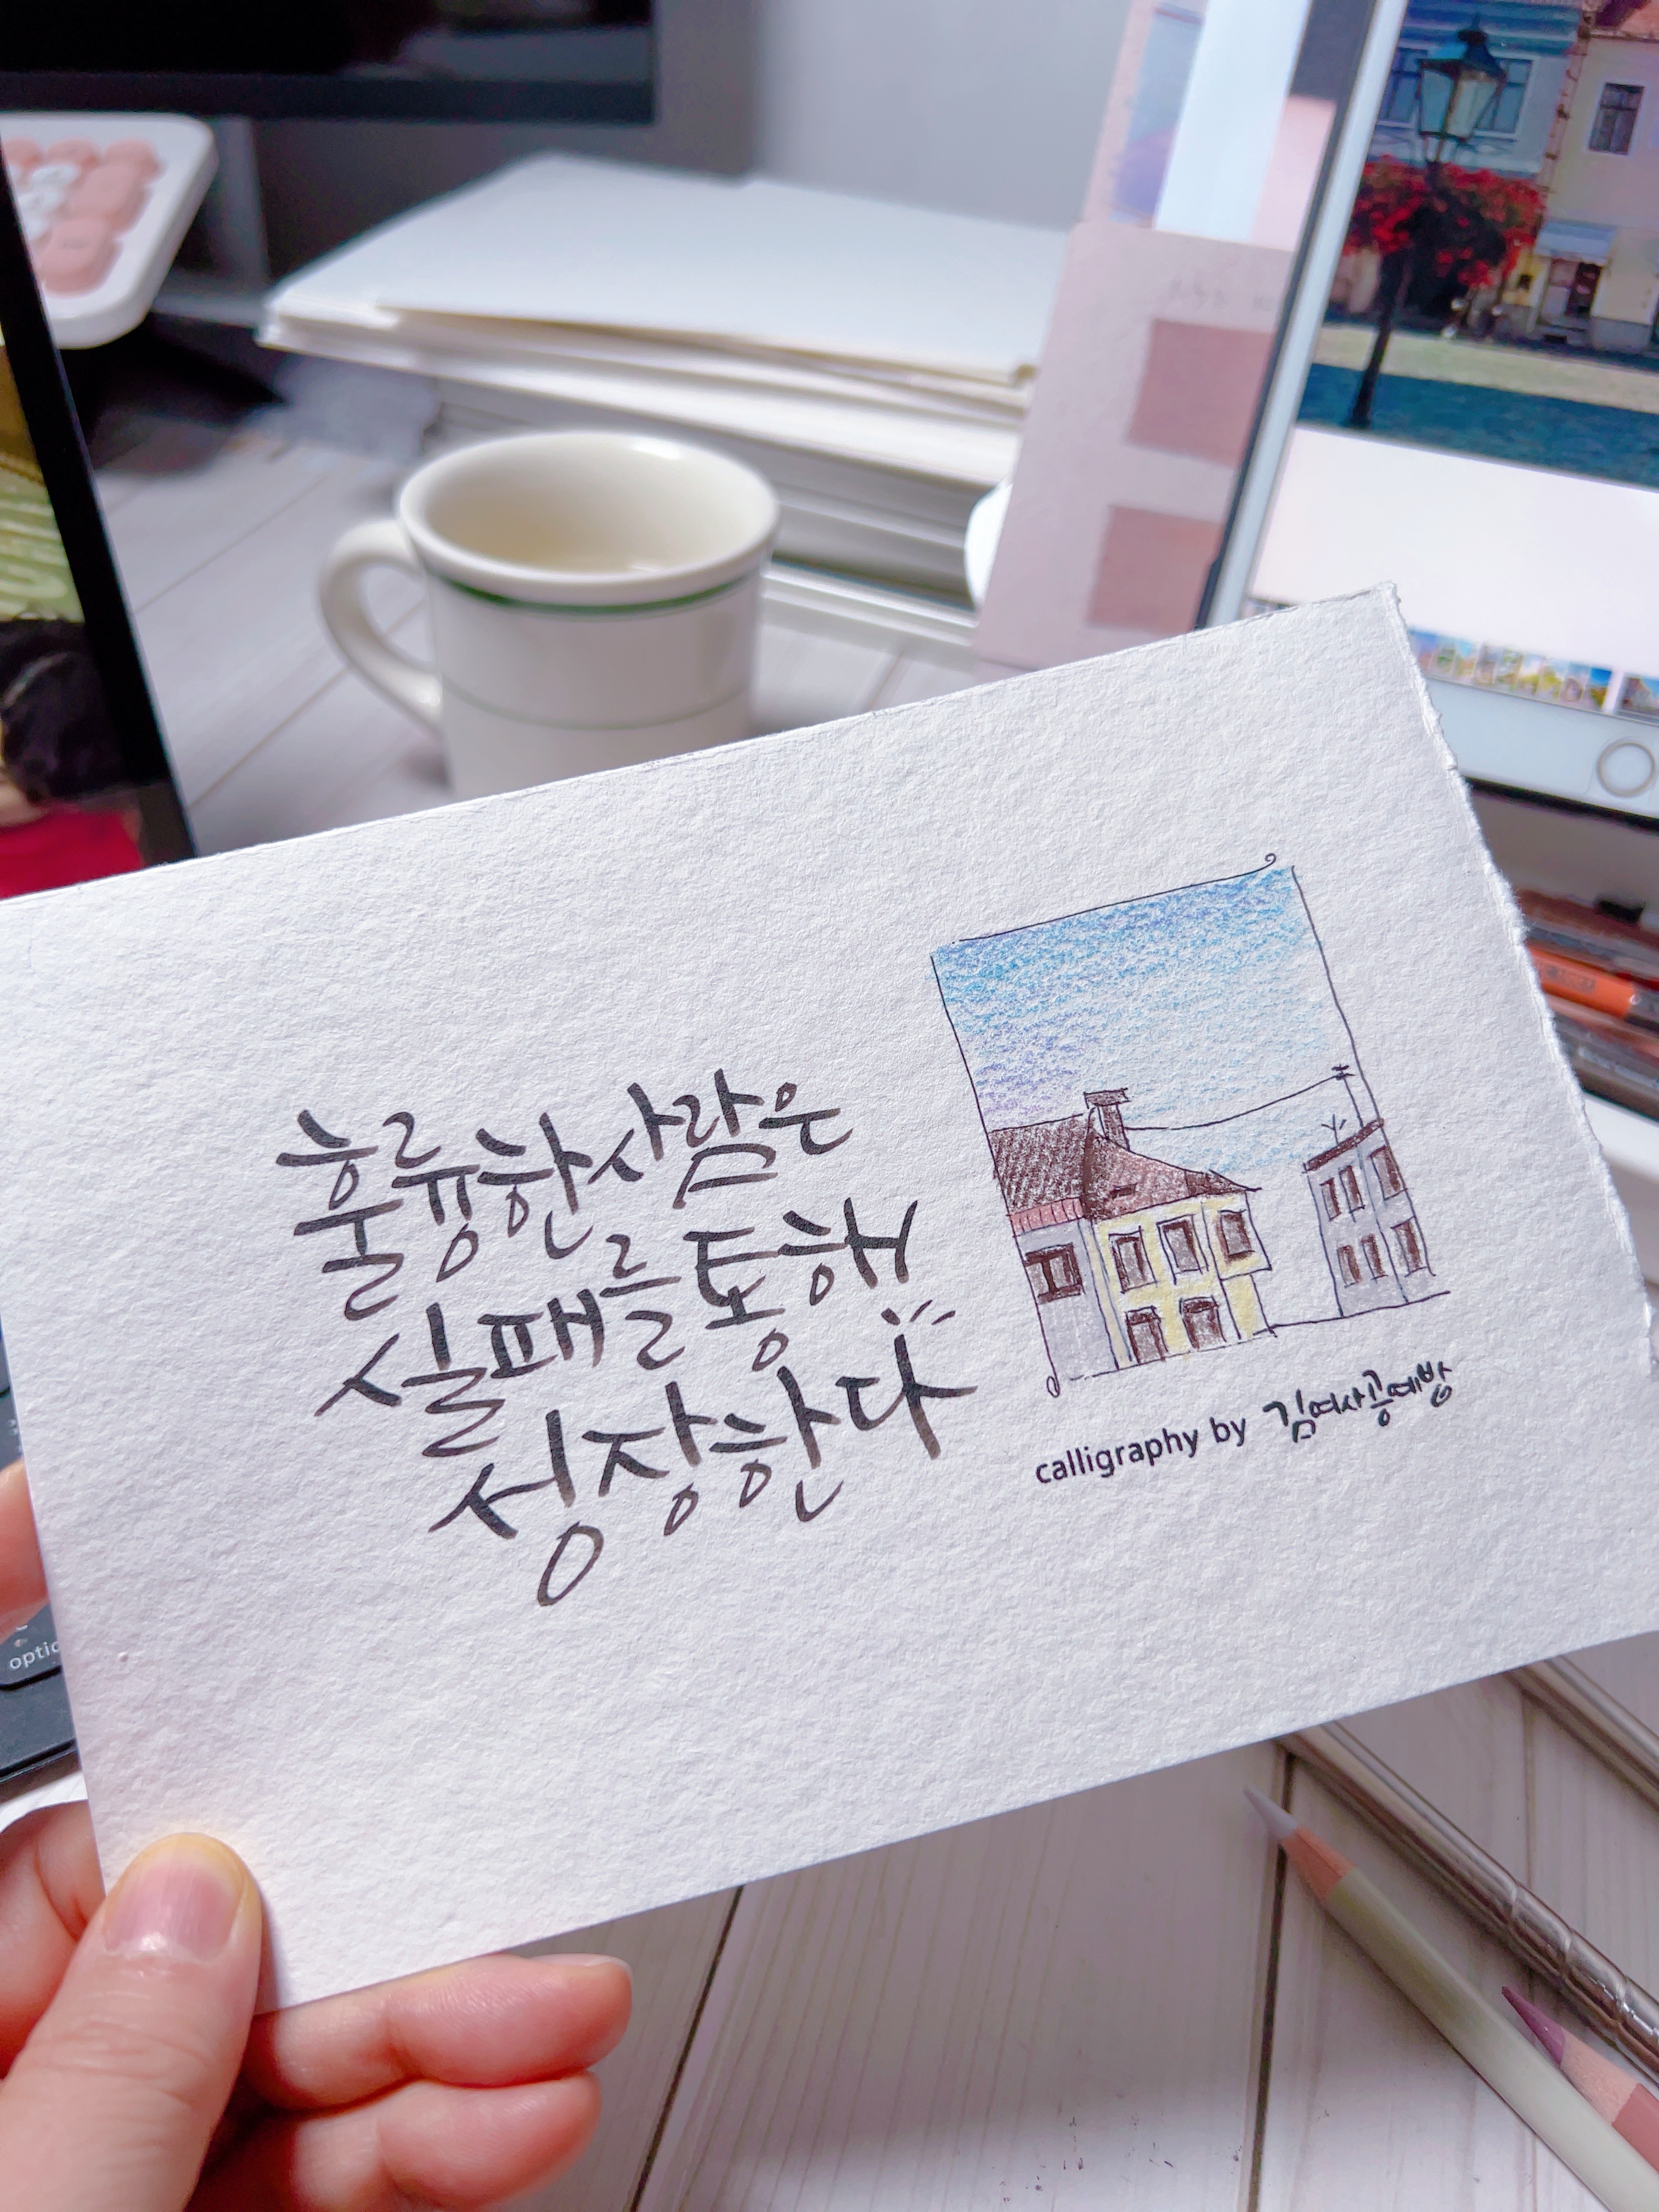 훌륭한 사람은
실패를 통해
성장한다
calligraphy by 김여사공예방
optio